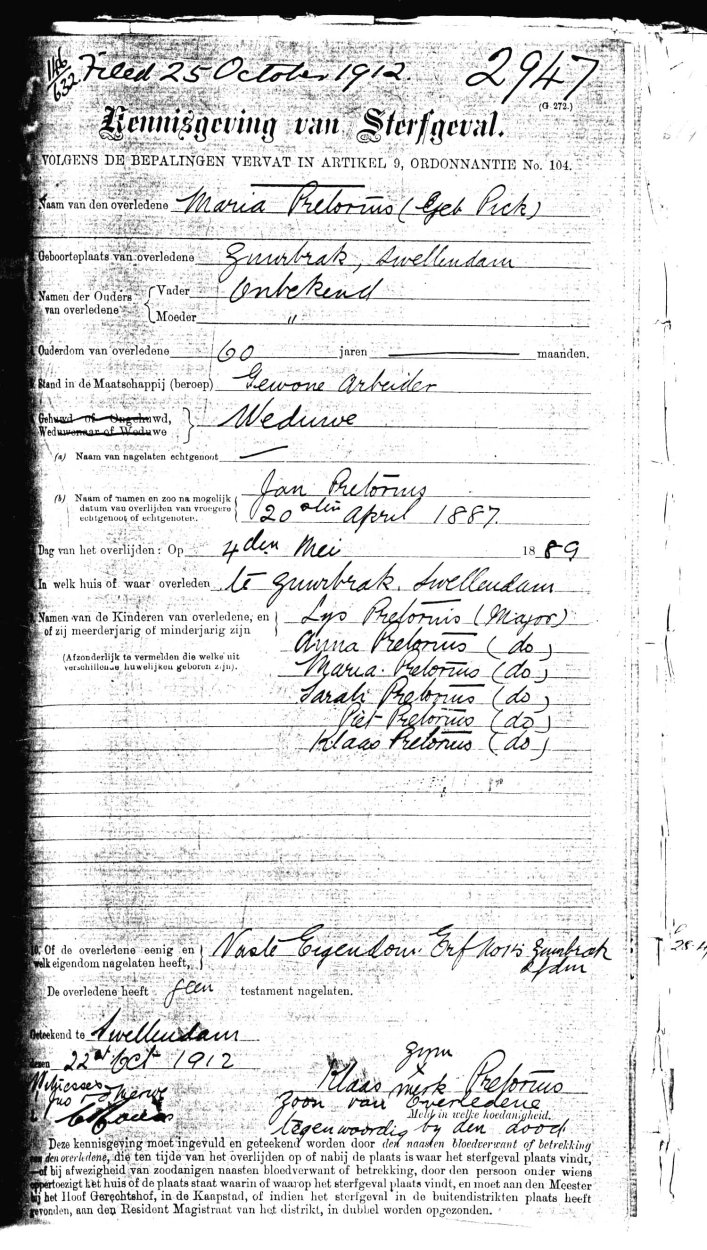 146/632 Filed 25 October 1912. 2947
(G 272.)
Kennisgeving van Sterfgeval.
VOLGENS DE BEPALINGEN VERVAT IN ARTIKEL 9, ORDONNANTIE No. 104.
Naam van den overledene Maria Pretorius (Geb Pick)
Geboorteplaats van overledene Zuurbrak, Swellendam
Namen der Ouders van overledene { Vader Onbekend
Moeder "
Ouderdom van overledene 60 jaren — maanden.
Stand in de Maatschappij (beroep) Gewone Arbeider
Gehuwd of Ongehuwd,
Weduwenaar of Weduwe } Weduwe
(a) Naam van nagelaten echtgenoot —
(b) Naam of namen en zoo na mogelijk Jan Pretorius
datum van overlijden van vroegere 20sten April 1887.
echtgenoot of echtgenoten.
Dag van het overlijden: Op 4den Mei 1889
In welk huis of waar overleden te Zuurbrak, Swellendam
Namen van de Kinderen van overledene, en Lys Pretorius (Major)
of zij meerderjarig of minderjarig zijn Anna Pretorius (do)
(Afzonderlijk te vermelden die welke uit Maria Pretorius (do)
verschillende huwelijken geboren zijn). Sarah Pretorius (do)
Piet Pretorius (do)
Klaas Pretorius (do)
10. Of de overledene eenig en Vaste Eigendom Erf No Zuurbrak
welk eigendom nagelaten heeft, Sfdm
De overledene heeft geen testament nagelaten.
Geteekend te Swellendam
denen 22st Oct 1912
zyn
Witnesses Klaas merk Pretorius
zoon van Overledene
Meld in welke hoedanigheid.
tegenwoordig by den dood
Deze kennisgeving moet ingevuld en geteekend worden door den naasten bloedverwant of betrekking
van den overledene, die ten tijde van het overlijden op of nabij de plaats is waar het sterfgeval plaats vindt,
of bij afwezigheid van zoodanigen naasten bloedverwant of betrekking, door den persoon onder wiens
oppertoezigt het huis of de plaats staat waarin of waarop het sterfgeval plaats vindt, en moet aan den Meester
bij het Hoof Gerechtshof, in de Kaapstad, of indien het sterfgeval in de buitendistrikten plaats heeft
gevonden, aan den Resident Magistraat van het distrikt, in dubbel worden opgezonden.